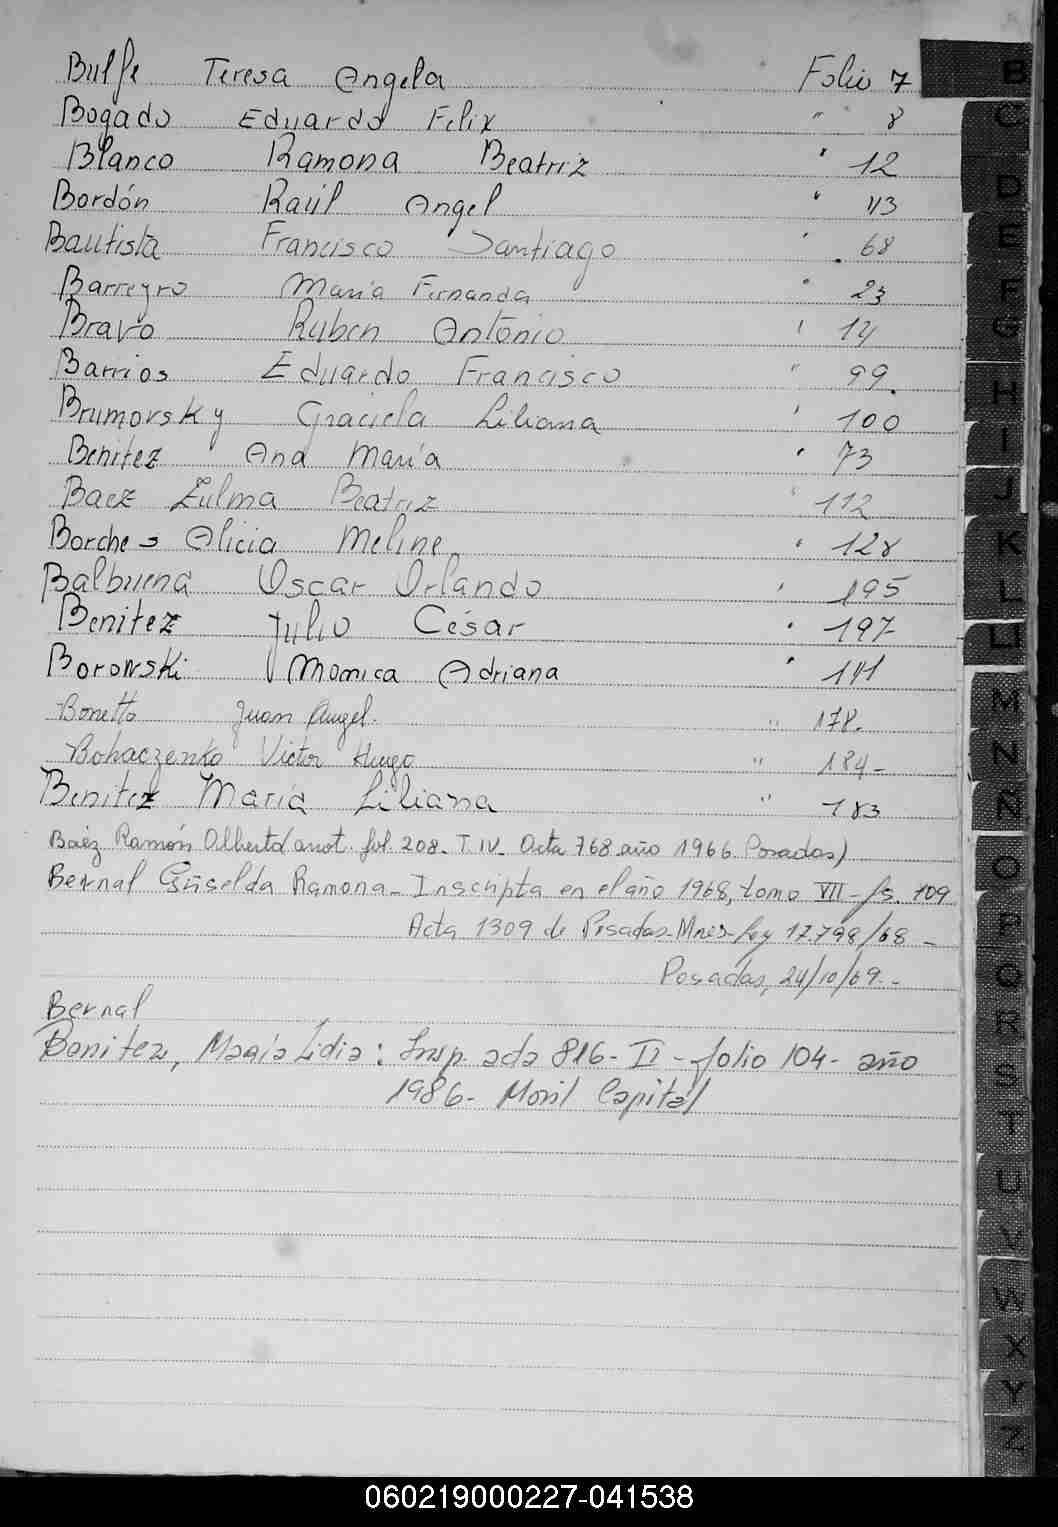 Bulfe Teresa Angela Folio 7
Bogado Eduardo Felix " 8
Blanco Ramona Beatriz " 12
Bordón Raúl Angel "
Bautista Francisco Santiago " 68
Barreyro María Fernanda " 23
Bravo Ruben Antonio " 14
Barrios Eduardo Francisco " 99.
Brumorsky Graciela Liliana " 100
Benitez Ana María " 73
Baez Zulma Beatriz " 112
Borches Alicia Meline " 128
Balbuena Oscar Orlando " 195
Benitez Julio César " 197
Borowski Monica Adriana " 141
Bonetto Juan Angel. " 178.
Bohaczenko Victor Hugo " 184-
Benitez María Liliana " 183
Baéz Ramón Alberto (anot. fol. 208. T. IV. Acta 768 año 1966 Posadas)
Bernal Griselda Ramona - Inscripta en el año 1968, tomo VII - fs. 109
Acta 1309 de Posadas - Mnes - ley 17.798/68 -
Posadas, 24/10/69. -
Bernal
Benitez, María Lidia: Insp. acta 816 - II - folio 104 - año
1986 - Movil Capital
B
C
D
E
F
G
H
I
J
K
L
LL
M
N
Ñ
O
P
Q
R
S
T
U
V
W
X
Y
Z
060219000227-041538